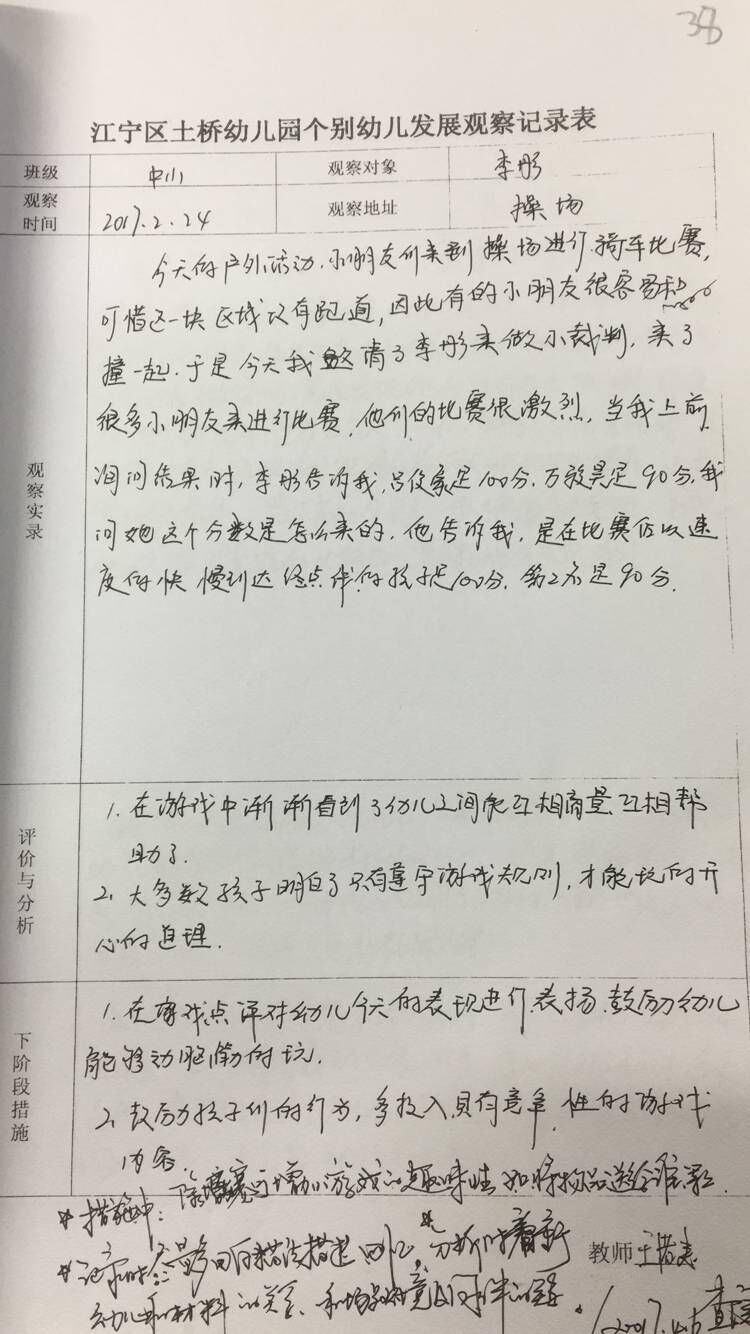 38
江宁区土桥幼儿园个别幼儿发展观察记录表
班级 中小 观察对象 李彤
观察时间 2017.2.24 观察地址 操场
观察实录
今天的户外活动,小朋友们来到操场进行骑车比赛,
可惜这一块区域没有跑道,因此有的小朋友很容易和
撞一起.于是今天我邀请了李彤来做小裁判,来了
很多小朋友来进行比赛,他们的比赛很激烈,当我上前
询问结果时,李彤告诉我,吕俊豪是100分,万毅昊是90分,我
问她这个分数是怎么来的,他告诉我,是在比赛后以速
度的快慢到达终点线的孩子是100分,第2名是90分.
评价与分析
1. 在游戏中渐渐看到了幼儿之间能互相商量,互相帮
助了.
2. 大多数孩子明白了只有遵守游戏规则,才能玩的开
心的道理.
下阶段措施
1. 在游戏点评对幼儿今天的表现进行表扬,鼓励幼儿
能够动脑筋的玩.
2. 鼓励孩子们的行为,多投入具有意 性的游戏
内容.
*措施中: 可增加游戏的趣味性,如将物品送给谁
*记录时尽量多 *分析时着重
教师
幼儿和材料的关系、 
2017.